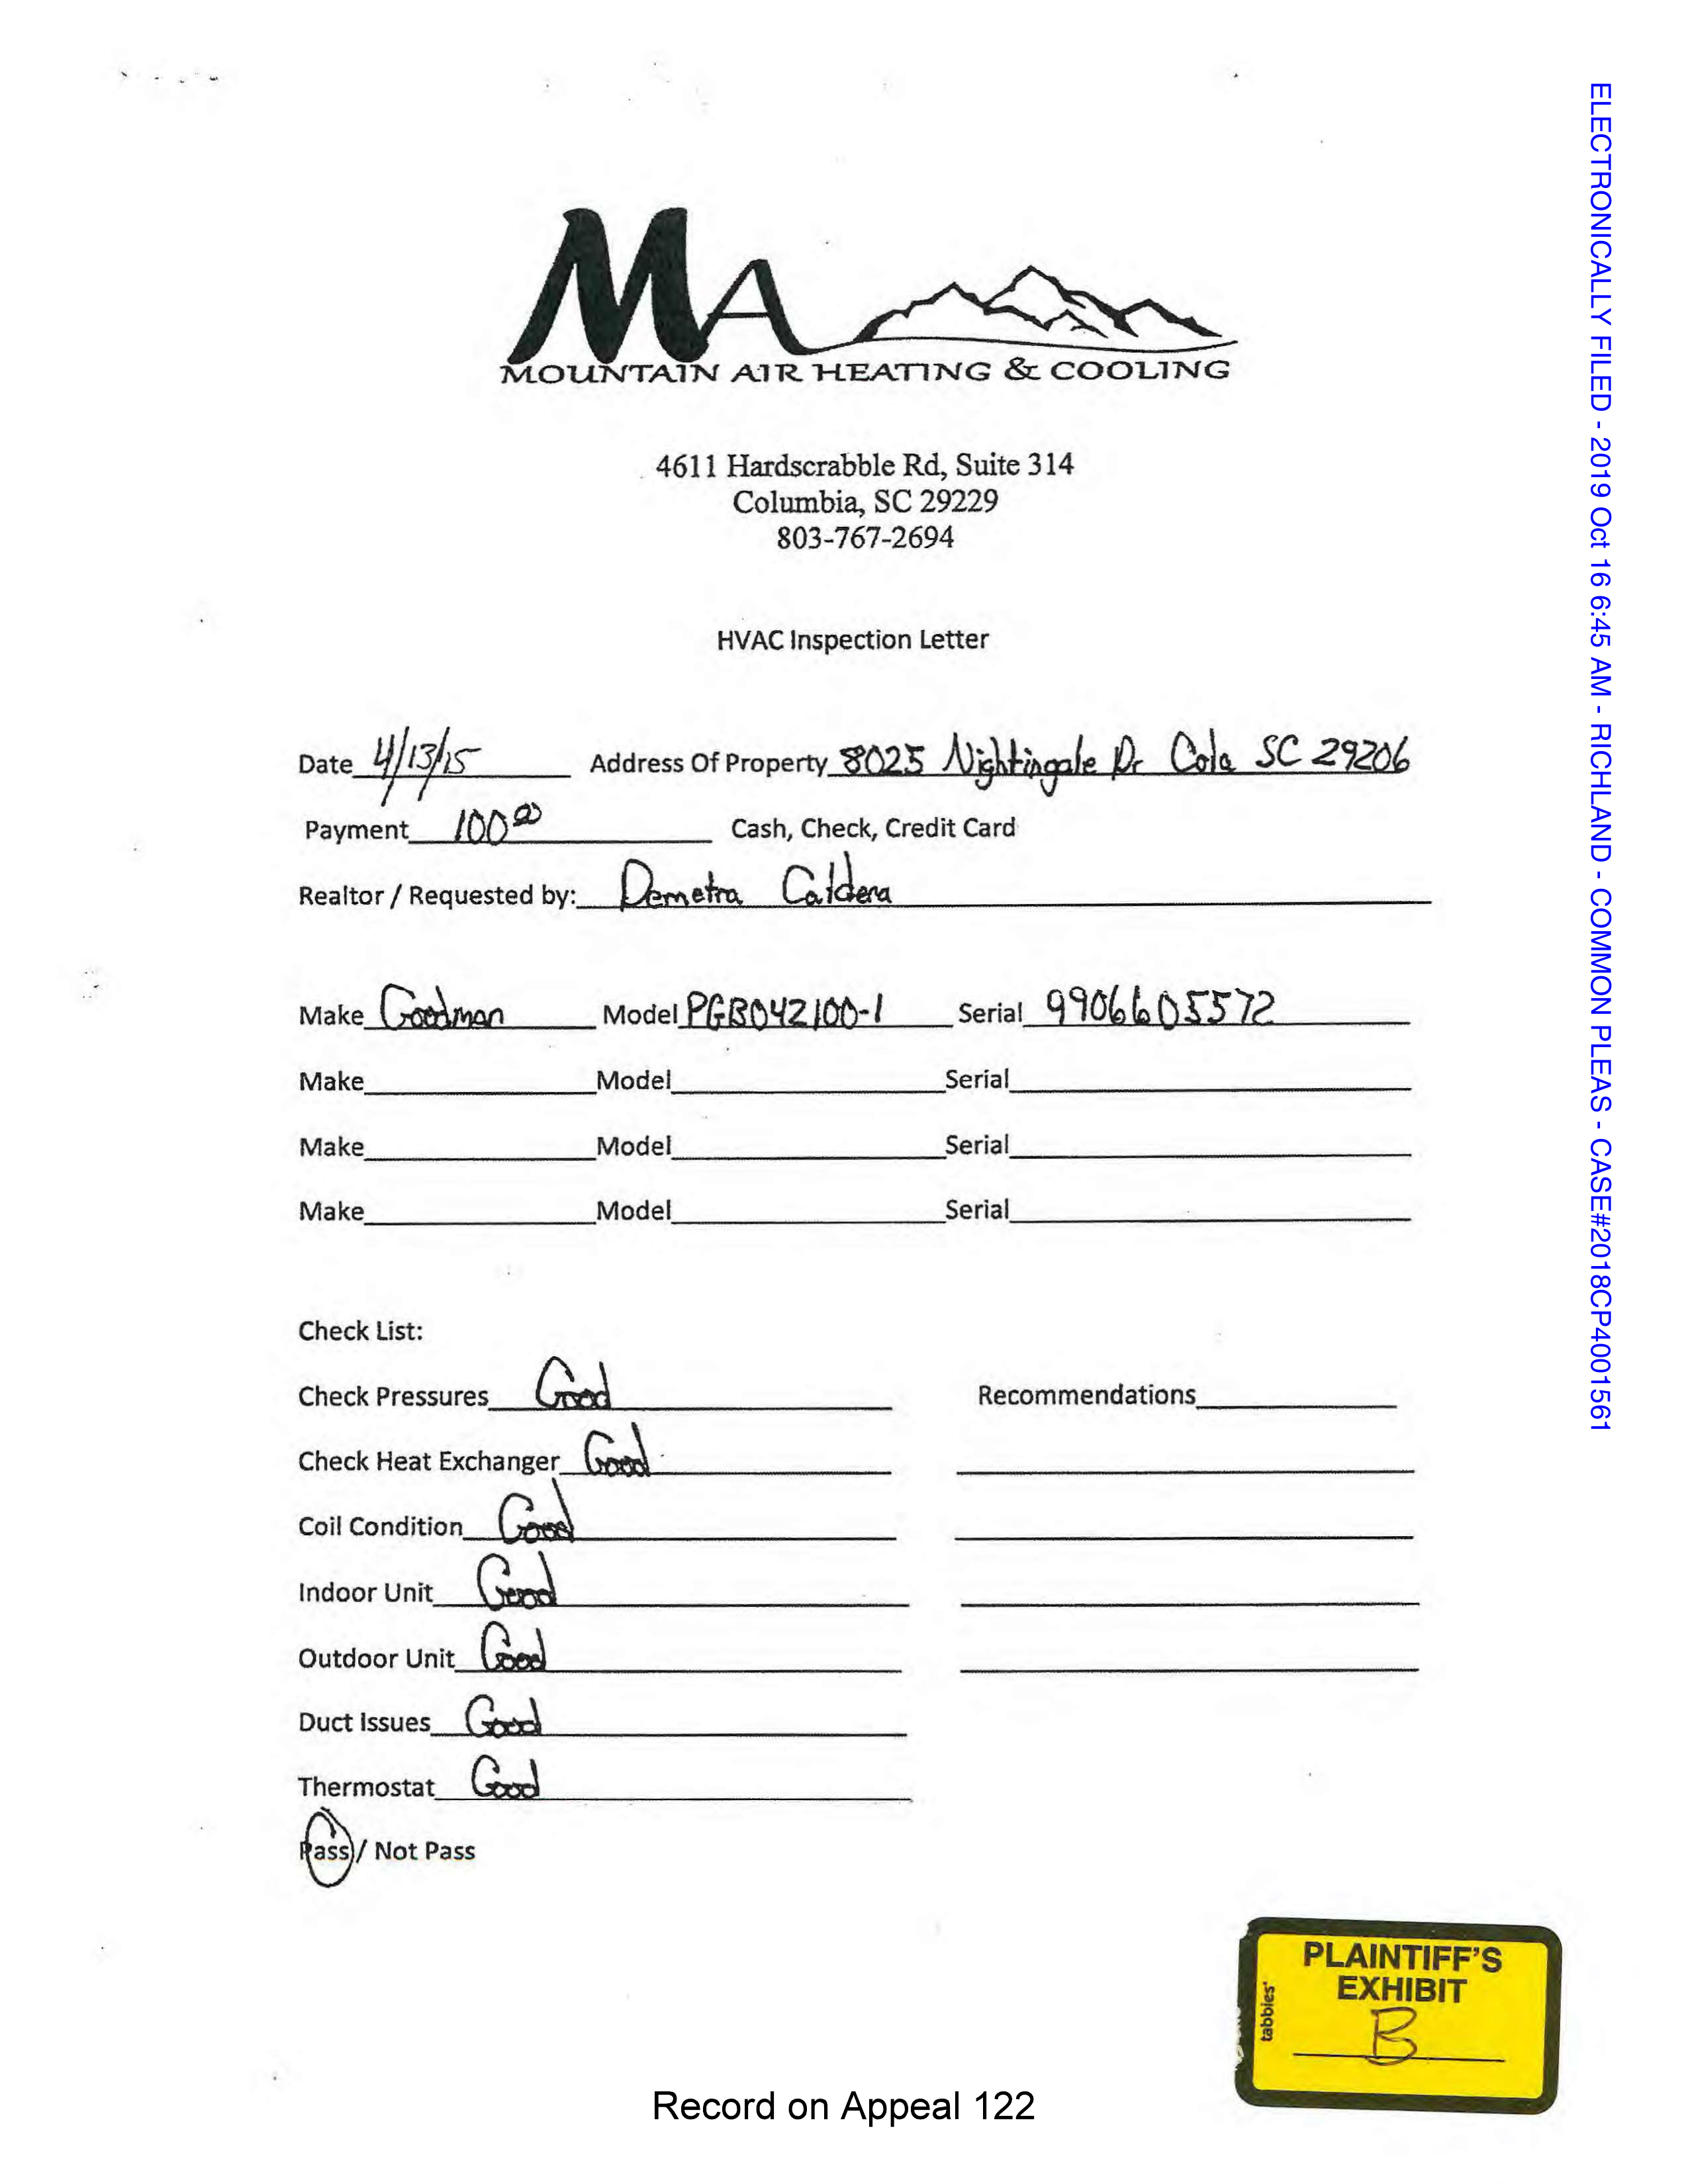 MA
MOUNTAIN AIR HEATING & COOLING
4611 Hardscrabble Rd, Suite 314
Columbia, SC 29229
803-767-2694
HVAC Inspection Letter
Date 4/13/15 Address Of Property 8025 Nightingale Dr Cola SC 29206
Payment 100 00 Cash, Check, Credit Card
Realtor / Requested by: Demetra Caldera
Make Goodman Model PGB042100-1 Serial 9906605572
Make Model Serial
Make Model Serial
Make Model Serial
Check List:
Check Pressures Good Recommendations
Check Heat Exchanger Good
Coil Condition Good
Indoor Unit Good
Outdoor Unit Good
Duct Issues Good
Thermostat Good
Pass / Not Pass
PLAINTIFF'S
EXHIBIT
B
tabbies'
Record on Appeal 122
ELECTRONICALLY FILED - 2019 Oct 16 6:45 AM - RICHLAND - COMMON PLEAS - CASE#2018CP4001561